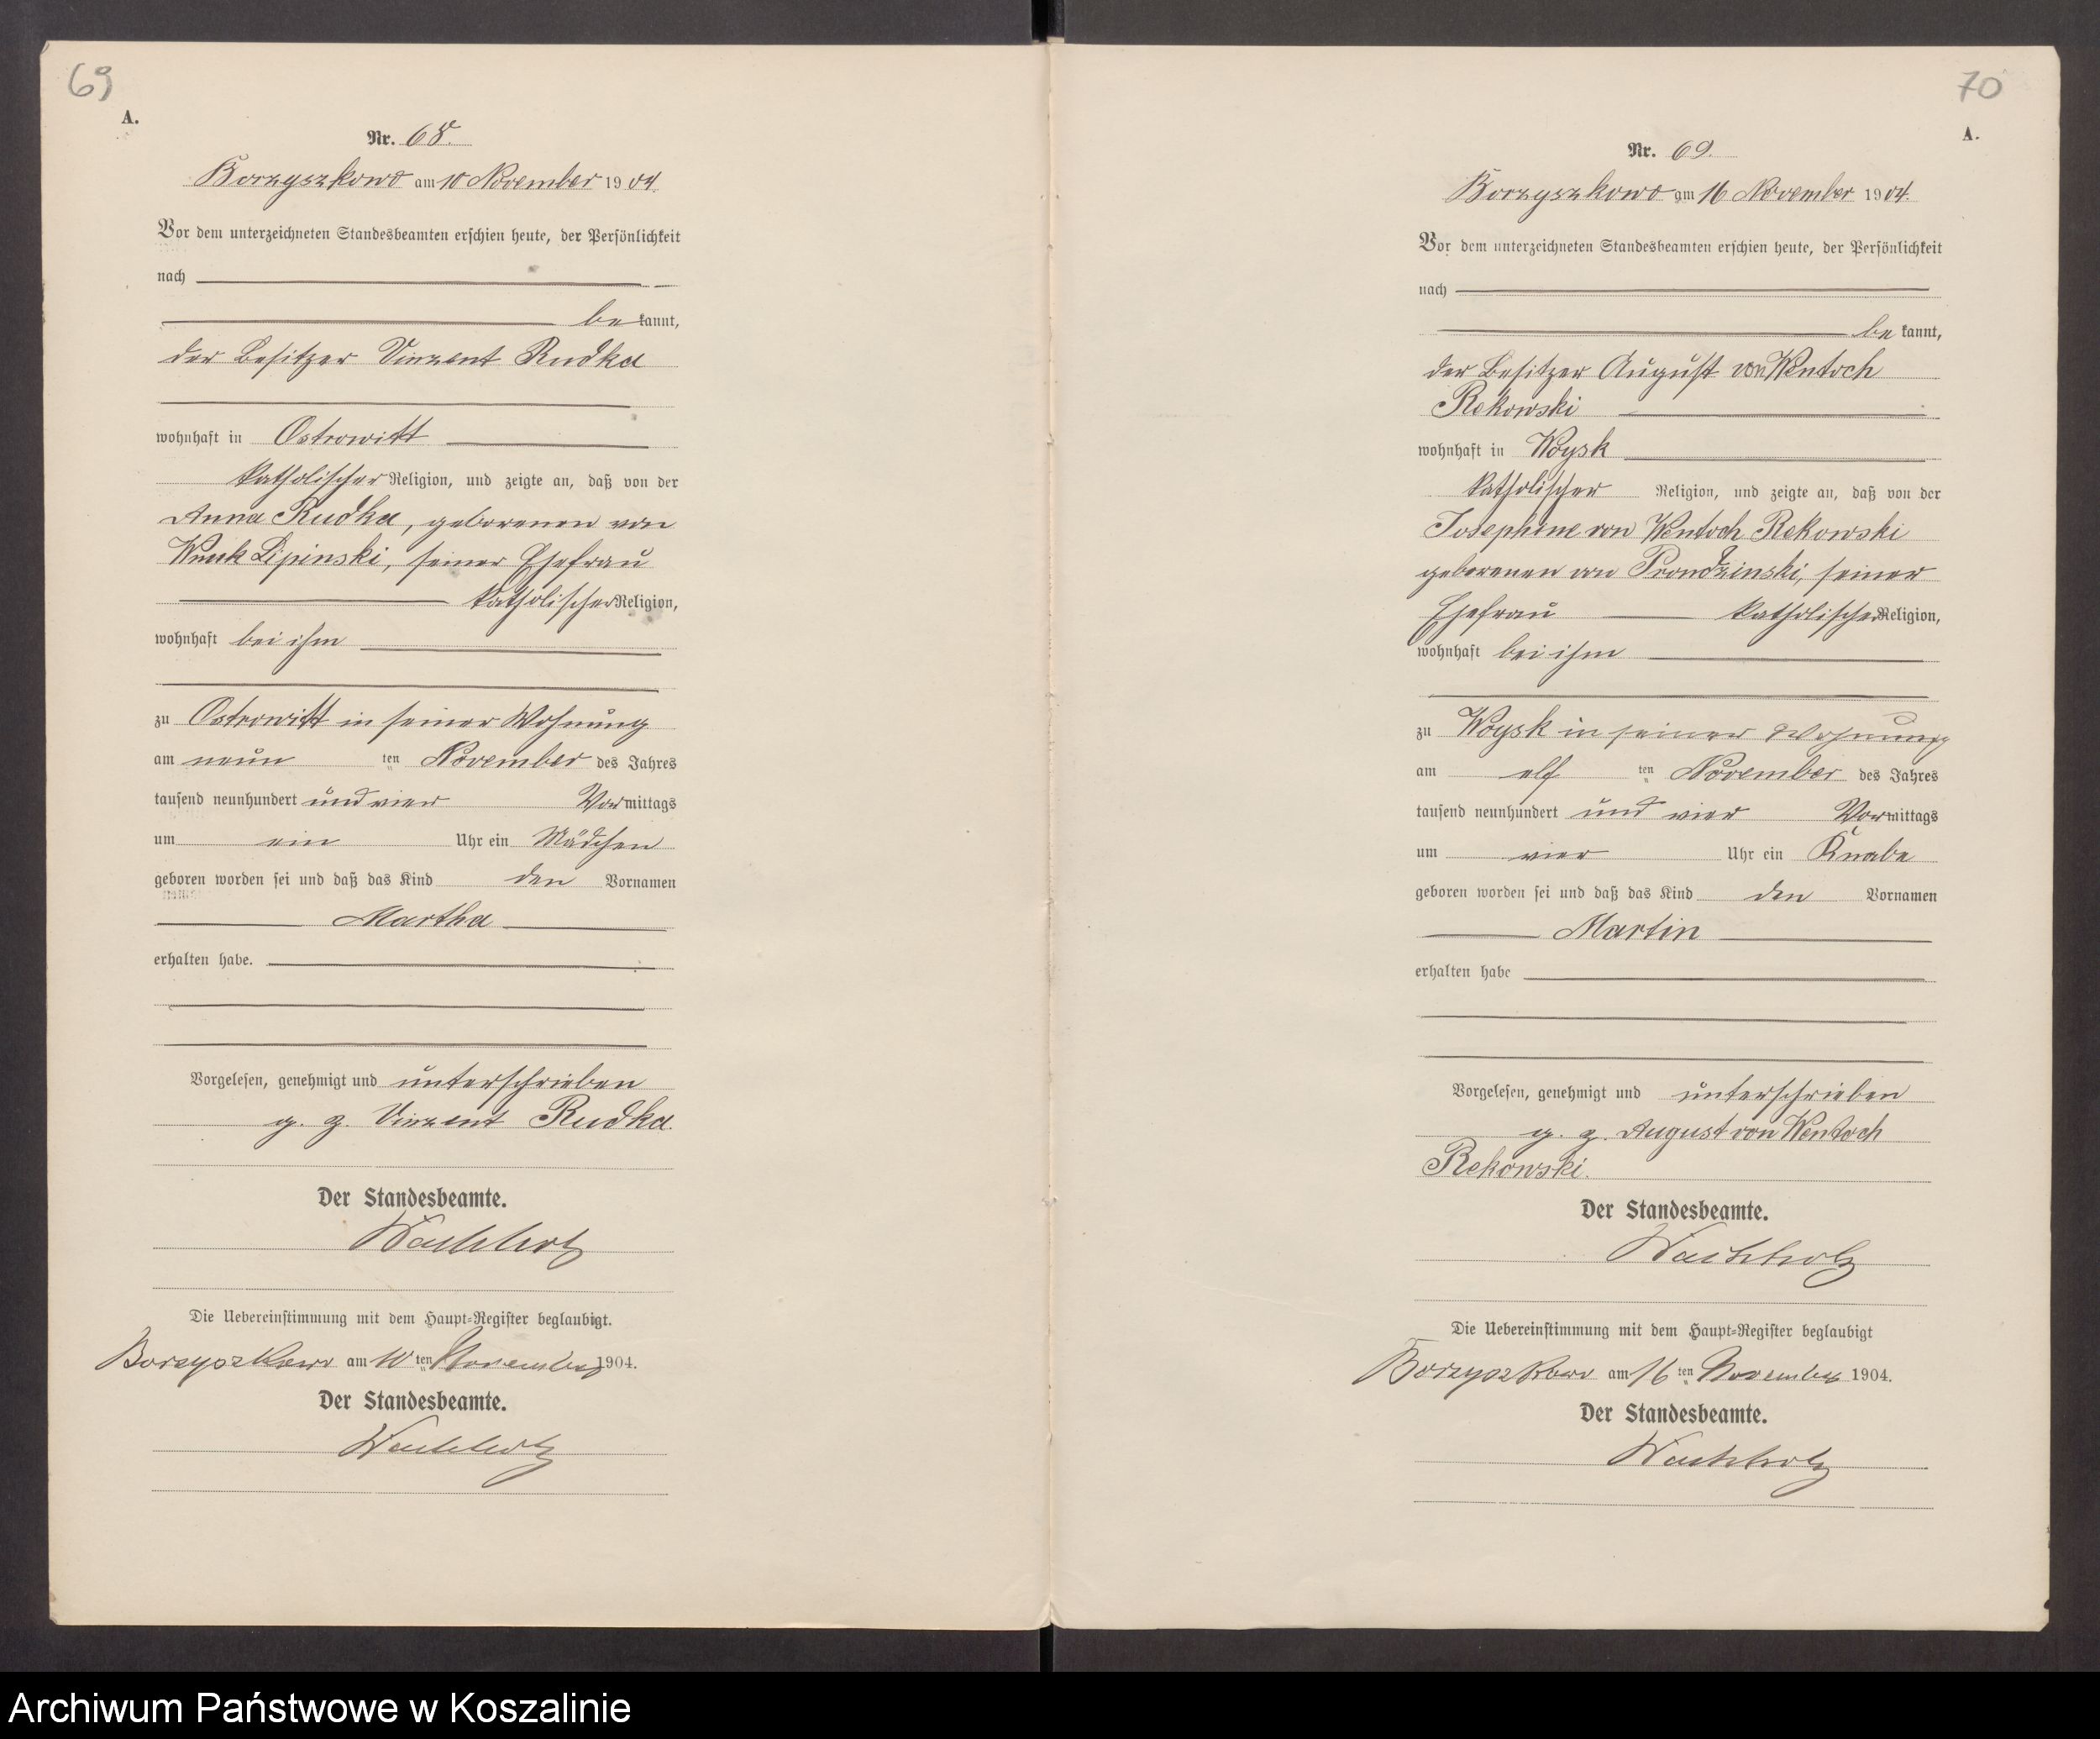 69
A.
Nr. 68.
Borzyszkowo am 10 November 1904.
Vor dem unterzeichneten Standesbeamten erschien heute, der Persönlichkeit
nach
be kannt,
der Besitzer Vinzent Rudka
wohnhaft in Ostrowitt
katholischer Religion, und zeigte an, daß von der
Anna Rudka, geborenen von
Wnuk Lipinski, seiner Ehefrau
katholischer Religion,
wohnhaft bei ihm
zu Ostrowitt in seiner Wohnung
am neun ten November des Jahres
tausend neunhundert und vier Vormittags
um ein Uhr ein Mädchen
geboren worden sei und daß das Kind den Vornamen
Martha
erhalten habe.
Vorgelesen, genehmigt und unterschrieben
g. g. Vinzent Rudka.
Der Standesbeamte.
Wachholz
Die Uebereinstimmung mit dem Haupt-Register beglaubigt.
Borzyszkowo am 10 ten November 1904.
Der Standesbeamte.
Wachholz
70
A.
Nr. 69.
Borzyszkowo am 16 November 1904.
Vor dem unterzeichneten Standesbeamten erschien heute, der Persönlichkeit
nach
be kannt,
der Besitzer August von Wentoch
Rekowski
wohnhaft in Woysk
katholischer Religion, und zeigte an, daß von der
Josephine von Wentoch Rekowski
geborenen von Prondzinski, seiner
Ehefrau katholischer Religion,
wohnhaft bei ihm
zu Woysk in seiner Wohnung
am elf ten November des Jahres
tausend neunhundert und vier Vormittags
um vier Uhr ein Knabe
geboren worden sei und daß das Kind den Vornamen
Martin
erhalten habe
Vorgelesen, genehmigt und unterschrieben
g. g. August von Wentoch
Rekowski.
Der Standesbeamte.
Wachholz
Die Uebereinstimmung mit dem Haupt-Register beglaubigt
Borzyszkowo am 16 ten November 1904.
Der Standesbeamte.
Wachholz
Archiwum Państwowe w Koszalinie